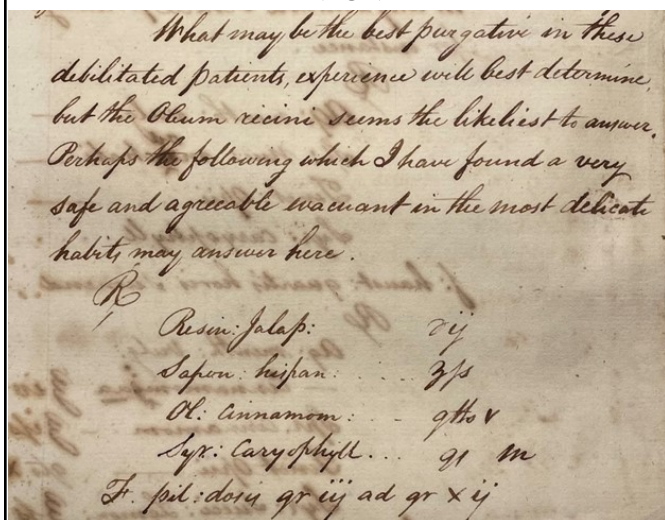 What may be the best purgative in these
debilitated patients, experience will best determine,
but the Oleum ricini seems the likeliest to answer.
Perhaps the following which I have found a very
safe and agreeable evacuant in the most delicate
habits may answer here.
℞
Resin: Jalap: ij
Sapon: hispan: ... ʒſs
Ol: Cinnamom: .. gtts v
Syr: Caryophyll... m
F. pil: dosis gr iij ad gr xij